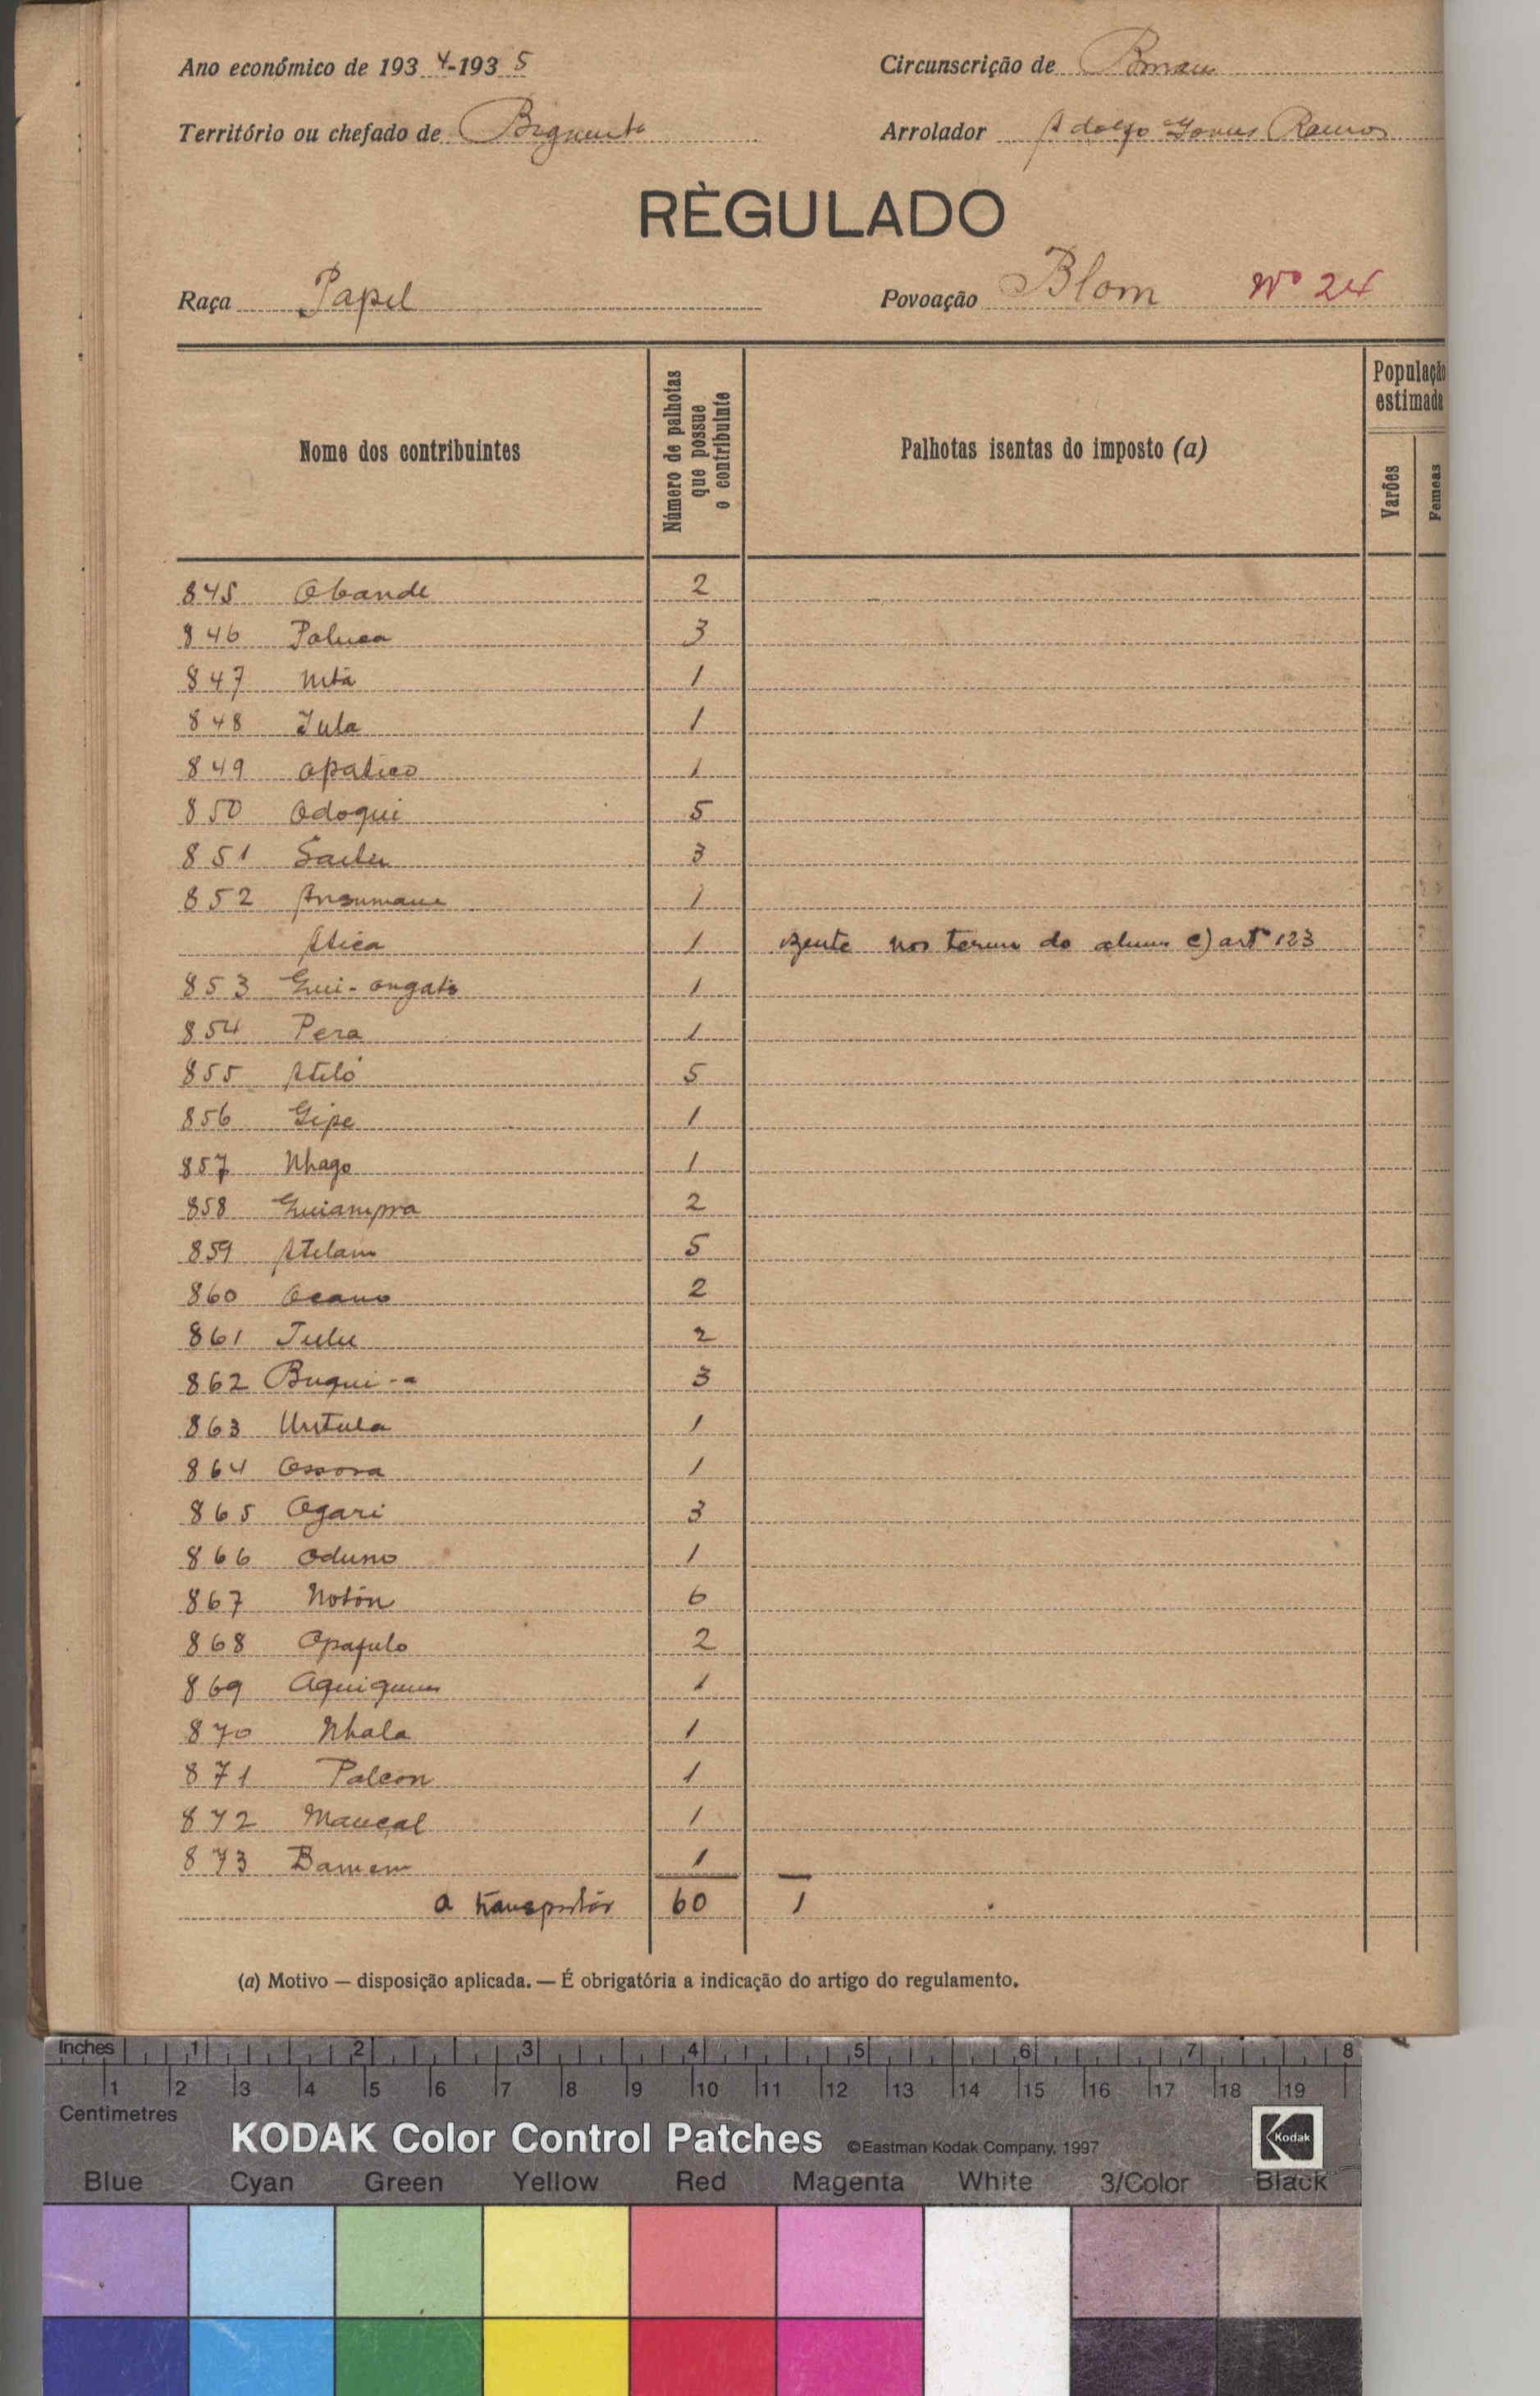 Ano económico de 1934-1935 Circunscrição de
Território ou chefado de Arrolador Adolfo Gomes Ramos
RÈGULADO
Raça Papel Povoação Blom Nº 24
Nome dos contribuintes Número de palhotas que possue o contribuinte Palhotas isentas do imposto (a) População estimada Varões Femeas
845 Obande 2
846 Paluca 3
847 Mtá 1
848 Jula 1
849 Opatico 1
850 Odoqui 5
851 3
852 Ansumane 1
Atica 1 izente nos termo do c) artº 123
853 Gui-ongato 1
854 Pera 1
855 Ateló 5
856 Gipe 1
857 Nhago 1
858 Guiampra 2
859 Atelam 5
860 Ocano 2
861 Julu 2
862 Buqui-a 3
863 Untula 1
864 Ossora 1
865 Ogari 3
866 Oduno 1
867 Notón 6
868 Opafulo 2
869 1
870 Nhala 1
871 Palcon 1
872 Mancal 1
873 Bamem 1
a transportár 60 1
(a) Motivo — disposição aplicada. — É obrigatória a indicação do artigo do regulamento.
Inches 1 2 3 4 5 6 7 8
1 2 3 4 5 6 7 8 9 10 11 12 13 14 15 16 17 18 19
Centimetres
KODAK Color Control Patches ©Eastman Kodak Company, 1997 Kodak
Blue Cyan Green Yellow Red Magenta White 3/Color Black